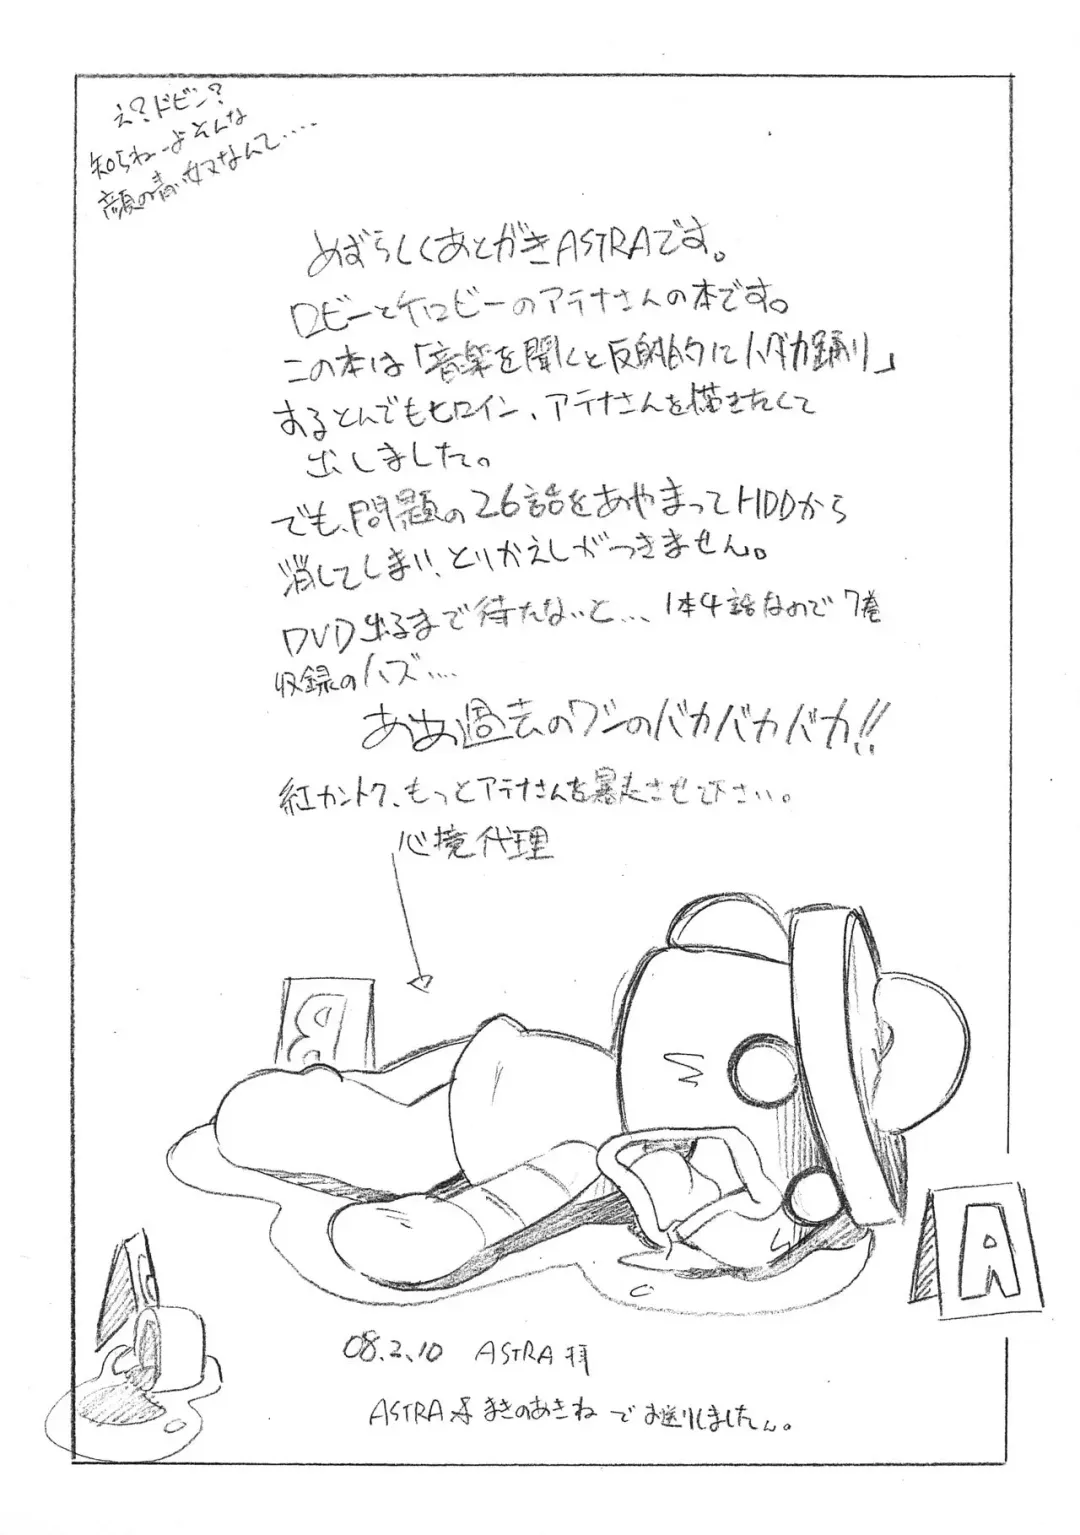 え?ドビン?
知らねーよそんな
顔の青い奴なんて……
めずらしくあとがきASTRAです。
ロビーとケロビーのアテナさんの本です。
この本は「音楽を聞くと反射的にハダカ踊り」
するとんでもヒロイン、アテナさんを描きたくて
出しました。
でも、問題の26話をあやまってHDDから
消してしまい、とりかえしがつきません。
DVD出るまで待たないと… 1本4話なので7巻
収録のハズ……
ああ過去のワシのバカバカバカ!!
紅カントク、もっとアテナさんを暴走させて下さい。
心境代理
B
A
08.2.10 ASTRA拝
ASTRA☆まきのあきね でお送りしましたん。